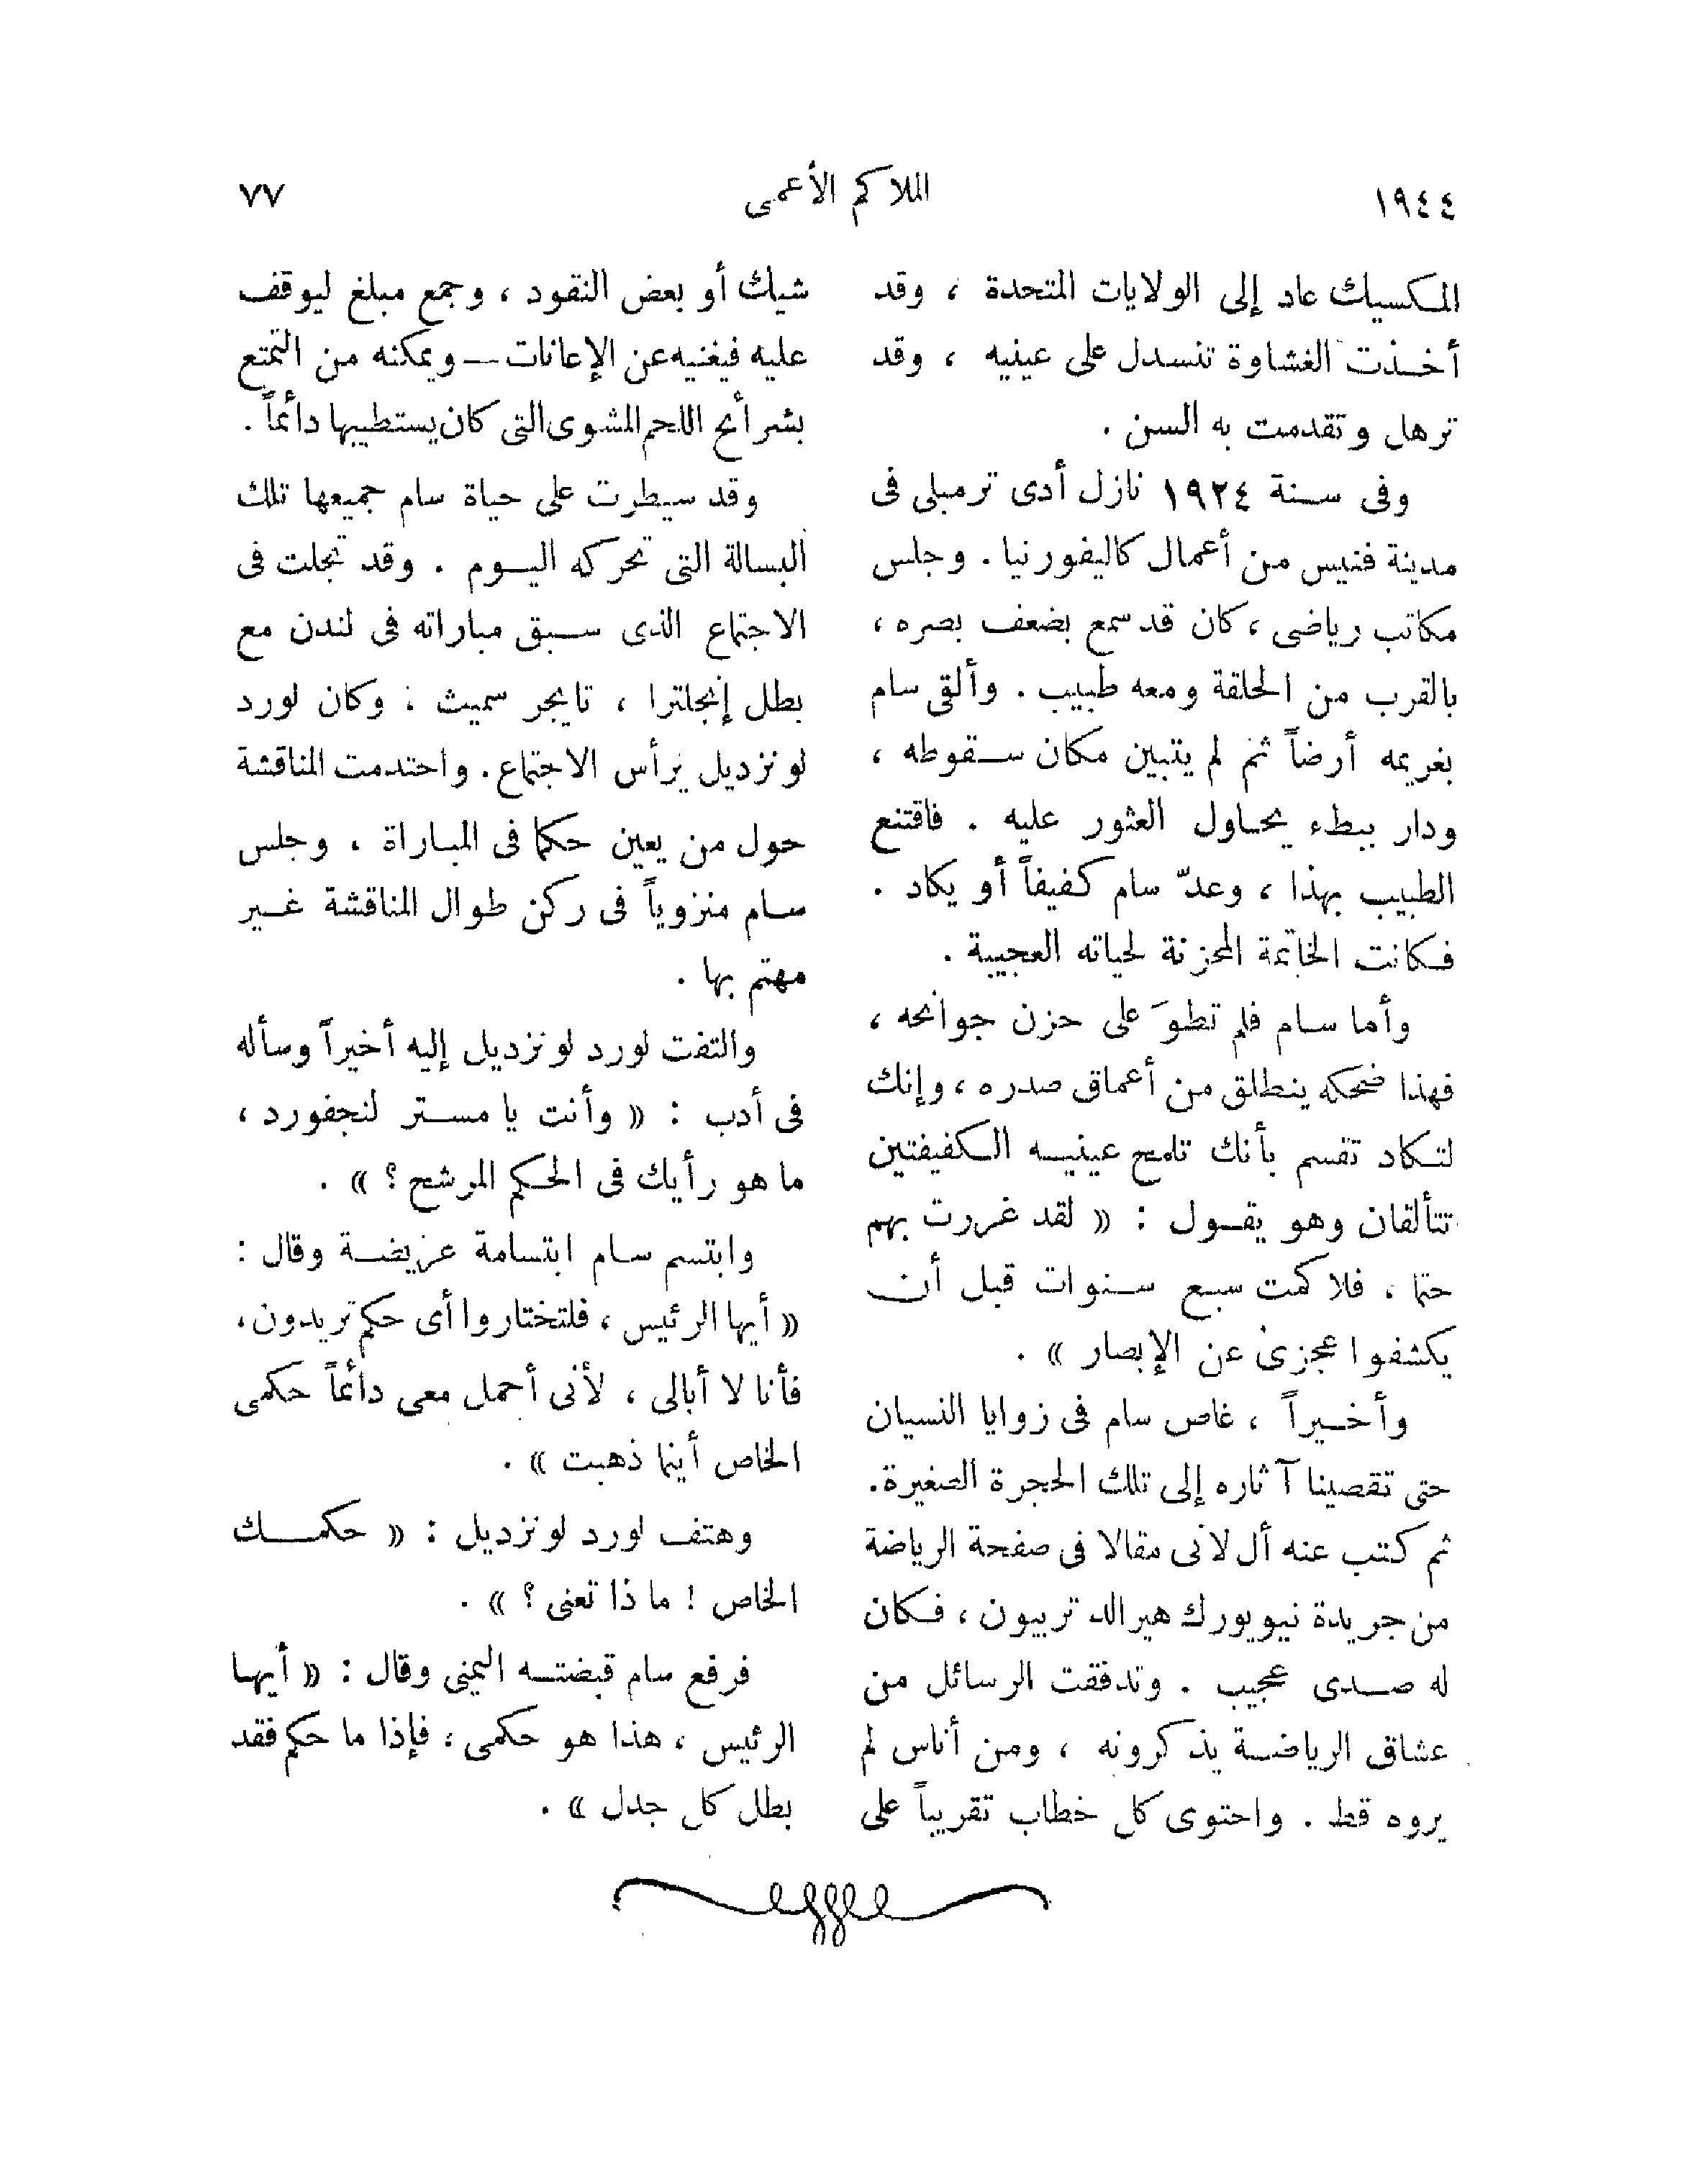 ١٩٤٤
الملاكم الأعمى
٧٧
المكسيك عاد إلى الولايات المتحدة ، وقد
أخذت الغشاوة تنسدل على عينيه ، وقد
ترهل وتقدمت به السن .
وفى سنة ١٩٢٤ نازل أدى ترمبلى فى
مدينة فنيس من أعمال كاليفورنيا . وجلس
مكاتب رياضى ، كان قد سمع بضعف بصره ،
بالقرب من الحلقة ومعه طبيب . وألقى سام
بغريمه أرضاً ثم لم يتبين مكان سقوطه ،
ودار ببطء يحاول العثور عليه . فاقتنع
الطبيب بهذا ، وعدّ سام كفيفاً أو يكاد .
فكانت الخاتمة المحزنة لحياته العجيبة .
وأما سام فلم تطوَ على حزن جوانحه ،
فهذا ضحكه ينطلق من أعماق صدره ، وإنك
لتكاد تقسم بأنك تلمح عينيه الكفيفتين
تتألقان وهو يقول : « لقد غررت بهم
حتما ، فلاكمت سبع سنوات قبل أن
يكشفوا عجزى عن الإبصار » .
وأخيراً ، غاص سام فى زوايا النسيان
حتى تقصينا آثاره إلى تلك الحجرة الصغيرة.
ثم كتب عنه أل لانى مقالا فى صفحة الرياضة
من جريدة نيويورك هيرالد تربيون ، فكان
له صدى عجيب . وتدفقت الرسائل من
عشاق الرياضة يذكرونه ، ومن أناس لم
يروه قط . واحتوى كل خطاب تقريباً على
شيك أو بعض النقود ، وجمع مبلغ ليوقف
عليه فيغنيه عن الإعانات — ويمكنه من التمتع
بشرائح اللحم المشوى التى كان يستطيبها دائماً .
وقد سيطرت على حياة سام جميعها تلك
البسالة التى تحركه اليوم . وقد تجلت فى
الاجتماع الذى سبق مباراته فى لندن مع
بطل إنجلترا ، تايجر سميث . وكان لورد
لونزديل يرأس الاجتماع . واحتدمت المناقشة
حول من يعين حكما فى المباراة ، وجلس
سام منزوياً فى ركن طوال المناقشة غير
مهتم بها .
والتفت لورد لونزديل إليه أخيراً وسأله
فى أدب : « وأنت يا مستر لنجفورد ،
ما هو رأيك فى الحكم المرشح ؟ » .
وابتسم سام ابتسامة عريضة وقال :
« أيها الرئيس ، فلتختاروا أى حكم تريدون،
فأنا لا أبالى ، لأنى أحمل معى دائماً حكمى
الخاص أينما ذهبت » .
وهتف لورد لونزديل : « حكمك
الخاص ! ما ذا تعنى ؟ » .
فرفع سام قبضته اليمنى وقال : « أيها
الرئيس ، هذا هو حكمى ، فإذا ما حكم فقد
بطل كل جدل » .